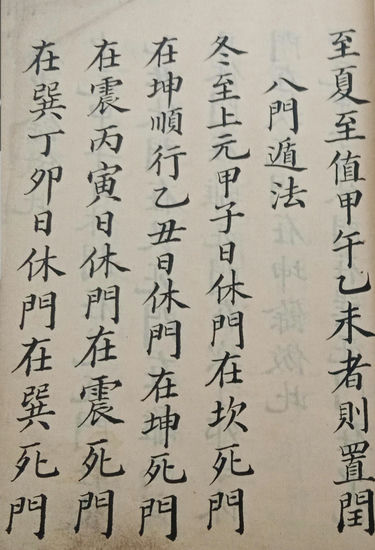 至夏至值甲午乙未者則置閏
八門遁法
冬至上元甲子日休門在坎死門
在坤順行乙丑日休門在坤死門
在震丙寅日休門在震死門
在巽丁卯日休門在巽死門